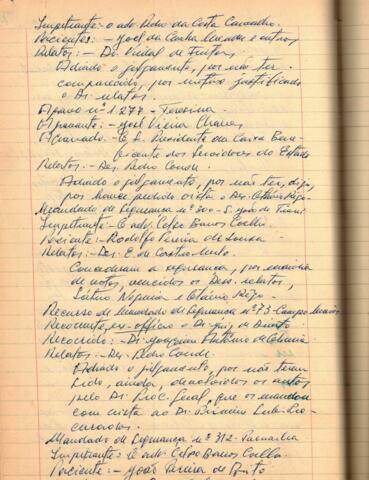 Impetrante: - O adv. Pedro da Costa Carvalho.
Pacientes: - José da Cunha e outros
Relator: - Dr. Vidal de Freitas.
Adiado o julgamento, por não ter
comparecido, por motivo justificado
o Dr. relator.
Agravo nº 1.277 - Teresina.
Agravante: - José Vieira Chaves
Agravado: - E. S. Presidente da Caixa Bene-
ficente dos Servidores do Estado
Relator: - Des. Pedro Conde.
Adiado o julgamento, por não ter, digo,
por haver pedido vista o Des. Otávio Rêgo.
Mandado de Segurança nº 300 - S. João do Piauí
Impetrante: - O adv. Celso Barros Coelho
Paciente: - Rodolfo Pereira de Sousa
Relator: - Des. E. de Castro Melo.
Concederam a segurança, por maioria
de votos, vencidos os Des. relator,
e Otávio Rêgo.
Recurso de Mandado de Segurança nº 73 - Campo Maior
Recorrente, ex-officio o Dr. Juiz de Direito
Recorrido: - Dr. Joaquim Antonio de Oliveira
Relator: - Des. Pedro Conde.
Adiado o julgamento, por não terem
sido, ainda, devolvidos os autos
pelo Dr. Proc. Geral, que os mandou
com vista ao Dr. Primeiro Sub-Pro-
curador.
Mandado de Segurança nº 312 - Parnaíba
Impetrante: O adv. Celso Barros Coelho.
Paciente: - João de Brito